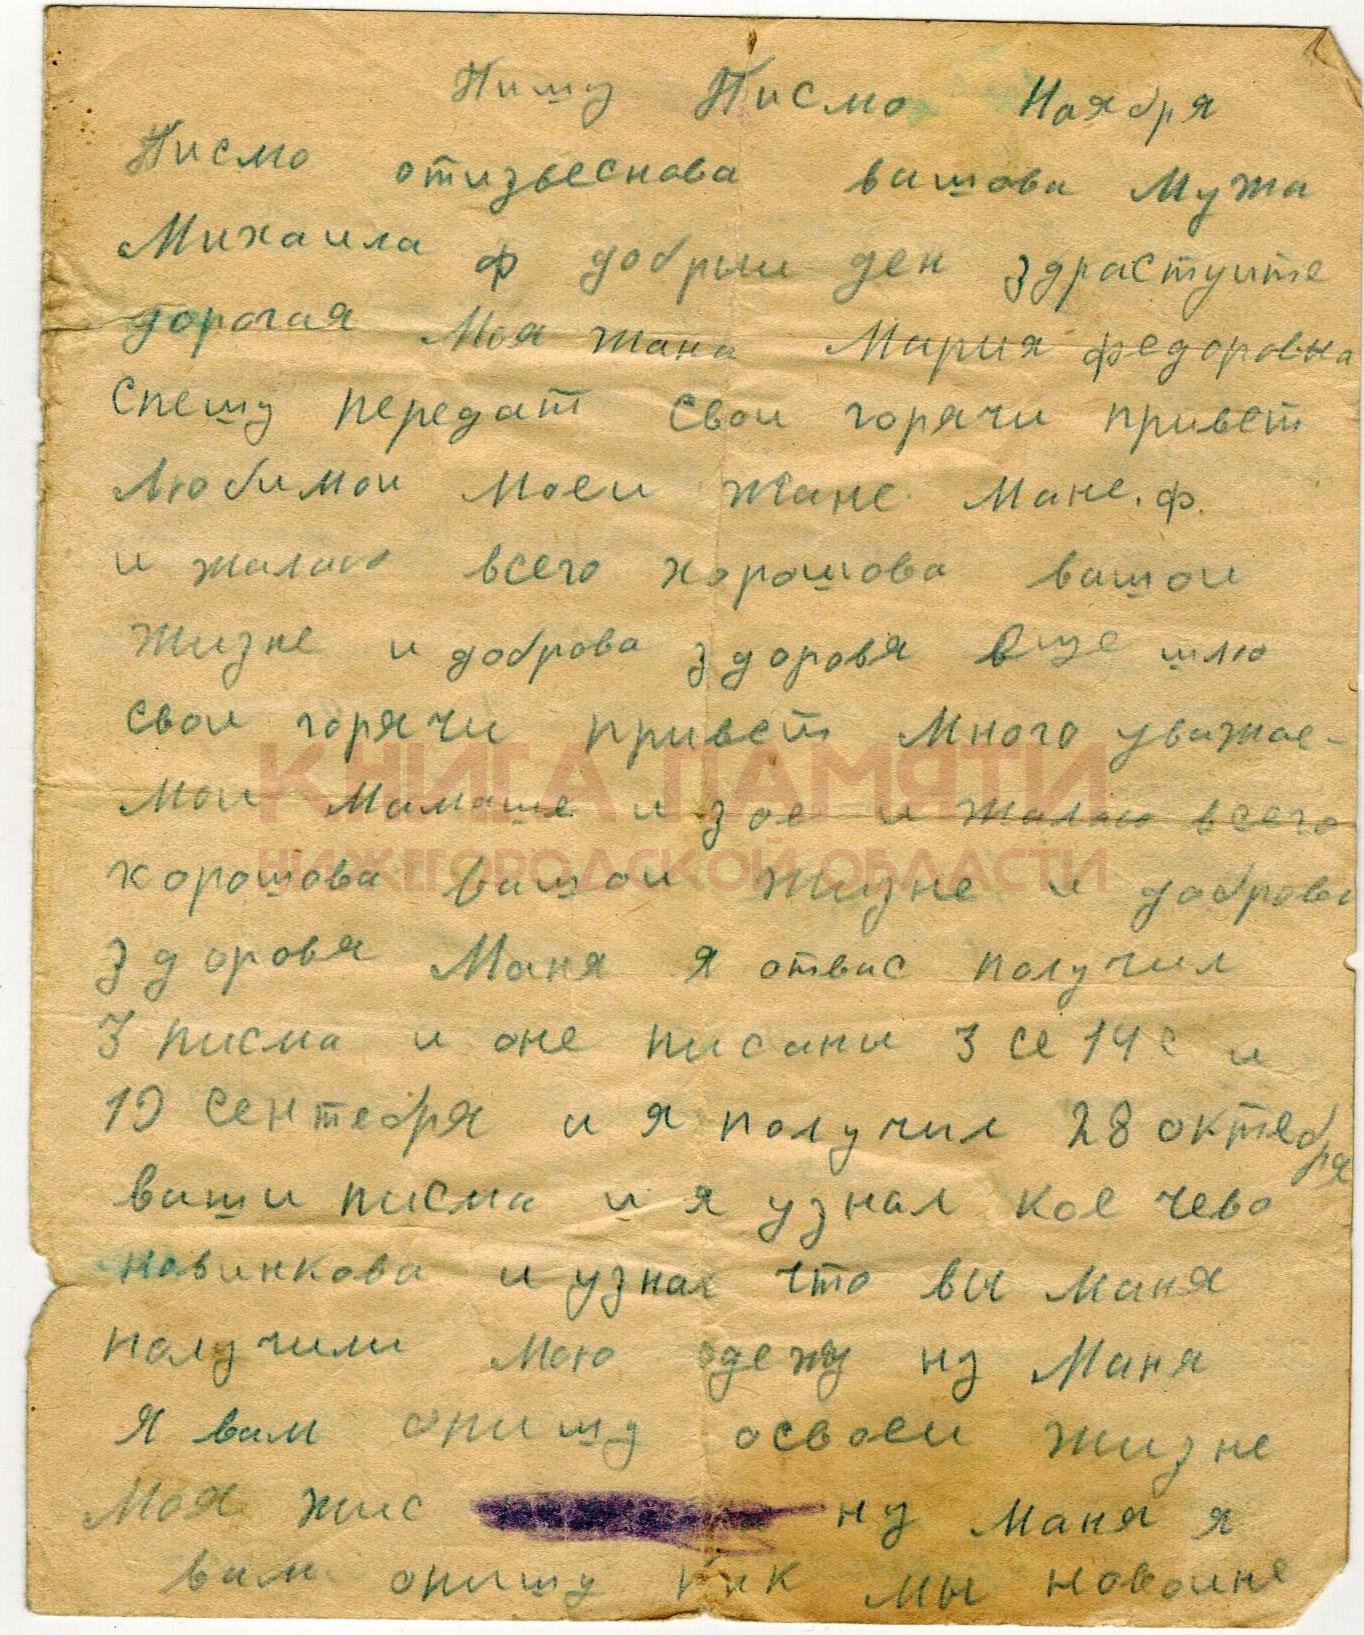 Пишу Писмо Ноября
Писмо отизвеснова вашова Мужа
Михаила ф добрыи ден здрастуите
дорогая Моя жана Мария федоровна
спешу передат свои горячи привет
Любимои моеи жане Мане.ф.
и жалаю всего хорошова вашои
жизне и доброва здоровя Еще шлю
свои горячи привет Много уважае-
мои Мамаше и зое и жалаю всего
хорошова вашои жизне и доброва
здоровя Маня я отвас получил
3 писма и оне писани 3 се 14 с и
19 сентебря и я получил 28 октебря
ваши писма и я узнал кое чево
новинкова и узнал что вы Маня
получили мою одежу ну Маня
Я вам опишу освоеи жизне
Моя жис ну Маня я
вам опишу как мы новоине
КНИГА ПАМЯТИ
НИЖЕГОРОДСКОЙ ОБЛАСТИ